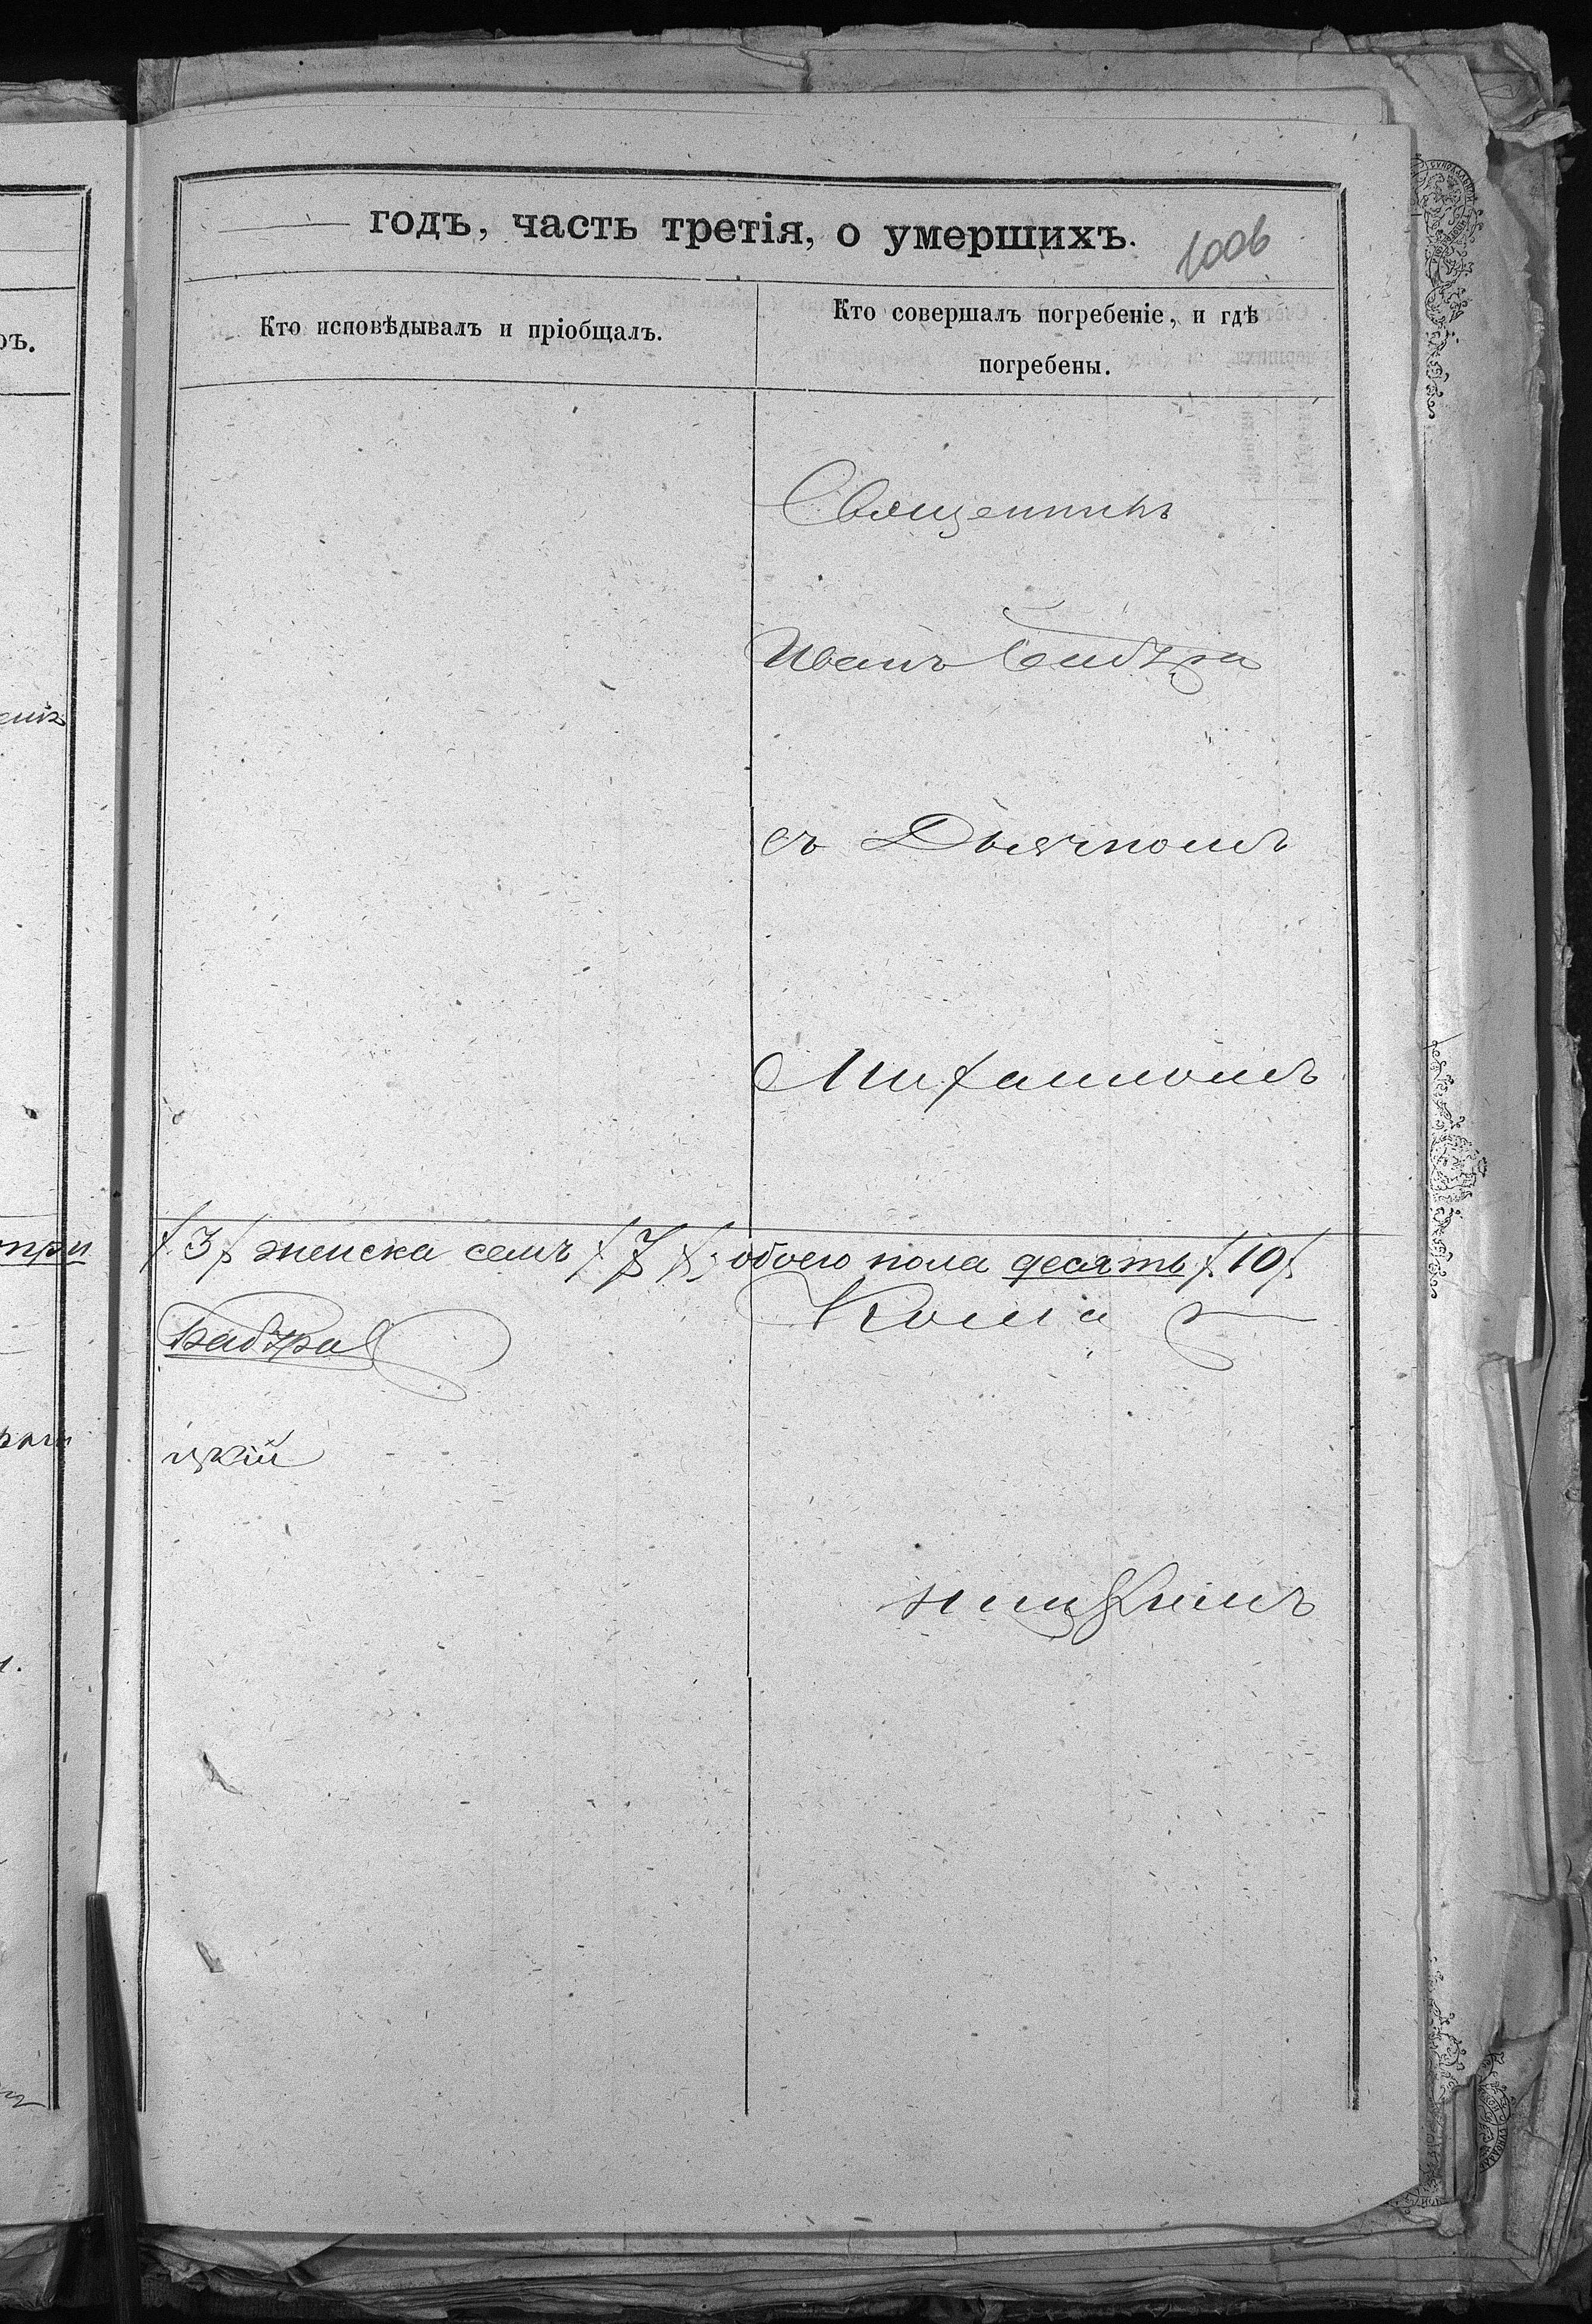 годъ, часть третія, о умершихъ.
1006
Кто исповѣдывалъ и пріобщалъ.
Кто совершалъ погребеніе, и гдѣ
погребены.
Священникъ
Иванъ
съ Дьячкомъ
Михаиломъ
три /3/ женска семъ /7/ обоего пола десять /10/
Кома
цкій
ницкимъ